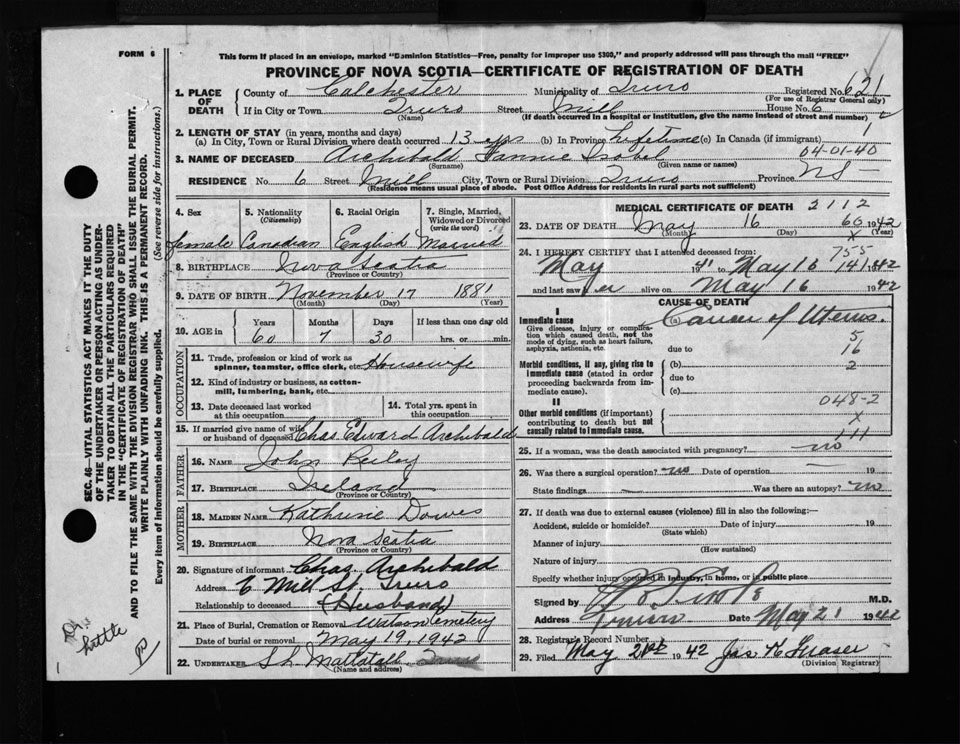 FORM 6
This form if placed in an envelope, marked "Dominion Statistics—Free, penalty for improper use $300," and properly addressed will pass through the mail "FREE"
PROVINCE OF NOVA SCOTIA—CERTIFICATE OF REGISTRATION OF DEATH
1. PLACE OF DEATH
County of Colchester Municipality of Truro Registered No. 621
(For use of Registrar General only)
If in City or Town Truro Street Mill House No. 6
(Name) (If death occurred in a hospital or institution, give the name instead of street and number)
2. LENGTH OF STAY (in years, months and days)
(a) In City, Town or Rural Division where death occurred 13 yrs (b) In Province Lifetime (c) In Canada (if immigrant) 1
3. NAME OF DECEASED Archibald Fannie Isobel 04-01-40
(Surname) (Given name or names)
RESIDENCE No. 6 Street Mill City, Town or Rural Division Truro Province NS —
(Residence means usual place of abode. Post Office Address for residents in rural parts not sufficient)
4. Sex
female
5. Nationality
(Citizenship)
Canadian
6. Racial Origin
English
7. Single, Married, Widowed or Divorced
(write the word)
Married
8. BIRTHPLACE Nova Scotia
(Province or Country)
9. DATE OF BIRTH November 17 1881
(Month) (Day) (Year)
10. AGE in
Years Months Days If less than one day old
60 7 30 hrs. or min.
OCCUPATION
11. Trade, profession or kind of work as spinner, teamster, office clerk, etc. Housewife
12. Kind of industry or business, as cotton-mill, lumbering, bank, etc.
13. Date deceased last worked at this occupation
14. Total yrs. spent in this occupation
15. If married give name of wife or husband of deceased Chas. Edward Archibald
FATHER
16. NAME John Reiley
17. BIRTHPLACE Ireland
(Province or Country)
MOTHER
18. MAIDEN NAME Kathrine Dawes
19. BIRTHPLACE Nova Scotia
(Province or Country)
20. Signature of informant Chas. Archibald
Address 6 Mill St. Truro
Relationship to deceased (Husband)
21. Place of Burial, Cremation or Removal Watson Cemetery
Date of burial or removal May 19, 1942
22. UNDERTAKER Mattatall Truro
(Name and address)
MEDICAL CERTIFICATE OF DEATH 2112
23. DATE OF DEATH May 16 60 1942
(Month) (Day) (Year)
X
24. I HEREBY CERTIFY that I attended deceased from: 755
May 1941 to May 16 141 1942
and last saw her alive on May 16 1942
CAUSE OF DEATH
I
Immediate cause
Give disease, injury or complication which caused death, not the mode of dying, such as heart failure, asphyxia, asthenia, etc.
(a) Cancer of Uterus.
5
due to 16
Morbid conditions, if any, giving rise to immediate cause (stated in order proceeding backwards from immediate cause).
(b) 2
due to
(c)
048-2
II
Other morbid conditions (if important) contributing to death but not causally related to immediate cause.
X
111
25. If a woman, was the death associated with pregnancy? no
26. Was there a surgical operation? no Date of operation — 19
State findings — Was there an autopsy? no
27. If death was due to external causes (violence) fill in also the following:—
Accident, suicide or homicide? Date of injury 19
(State which)
Manner of injury
(How sustained)
Nature of injury
Specify whether injury occurred in industry, in home, or in public place
Signed by M.D.
Address Truro Date May 21 1942
28. Registrar's Record Number
29. Filed May 21st 1942 Jas K Fraser
(Division Registrar)
SEC. 46—VITAL STATISTICS ACT MAKES IT THE DUTY
OF THE UNDERTAKER OR PERSON ACTING AS UNDERTAKER TO OBTAIN ALL THE PARTICULARS REQUIRED
IN THE "CERTIFICATE OF REGISTRATION OF DEATH"
AND TO FILE THE SAME WITH THE DIVISION REGISTRAR WHO SHALL ISSUE THE BURIAL PERMIT.
WRITE PLAINLY WITH UNFADING INK. THIS IS A PERMANENT RECORD.
Every item of information should be carefully supplied. (See reverse side for instructions.)